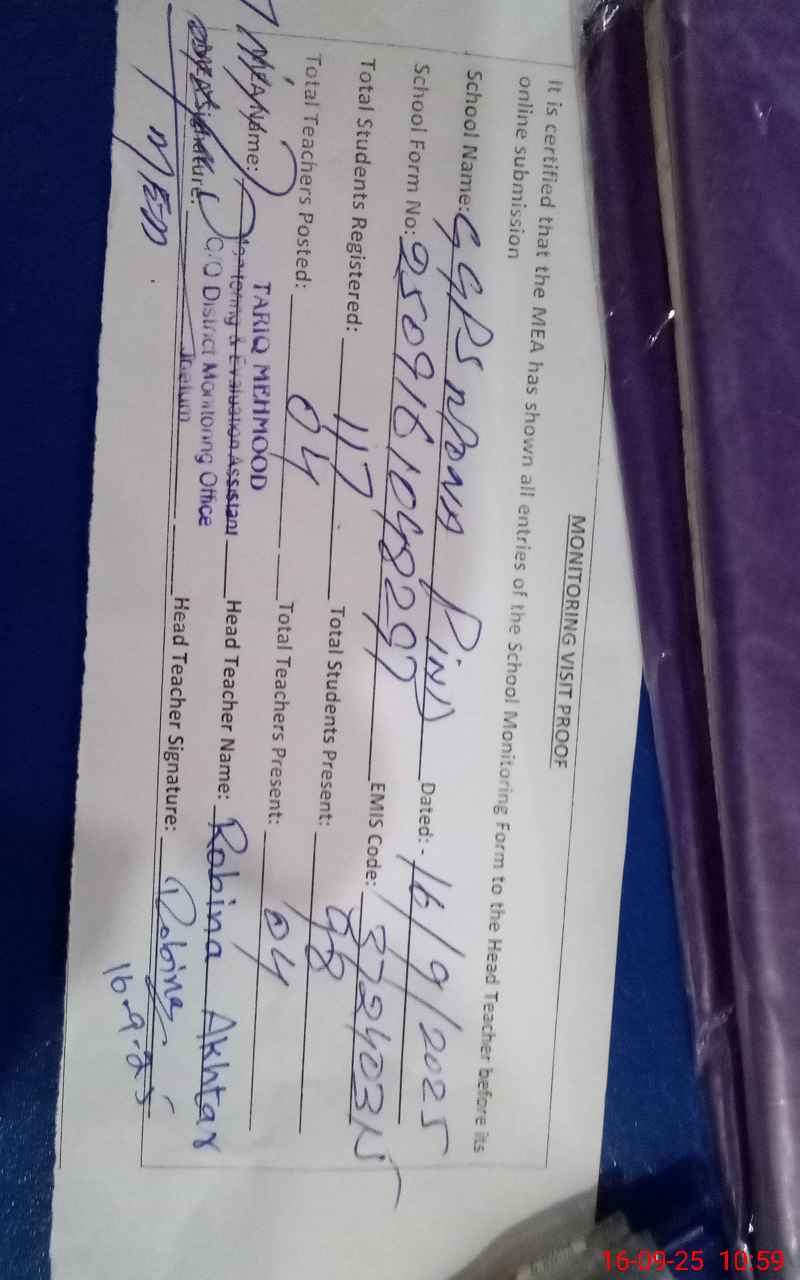 MONITORING VISIT PROOF
It is certified that the MEA has shown all entries of the School Monitoring Form to the Head Teacher before its
online submission
School Name: GGPS Pind Dated: - 16/9/2025
School Form No: 9509161048297 EMIS Code:
Total Students Registered: 117 Total Students Present: 98
Total Teachers Posted: 04 Total Teachers Present: 04
MEA Name: TARIQ MEHMOOD Head Teacher Name: Robina Akhtar
Monitoring & Evaluation Assistant
C/O District Monitoring Office
Jhelum
Signature: Head Teacher Signature: Robina
16-9-25
16-09-25 10:59